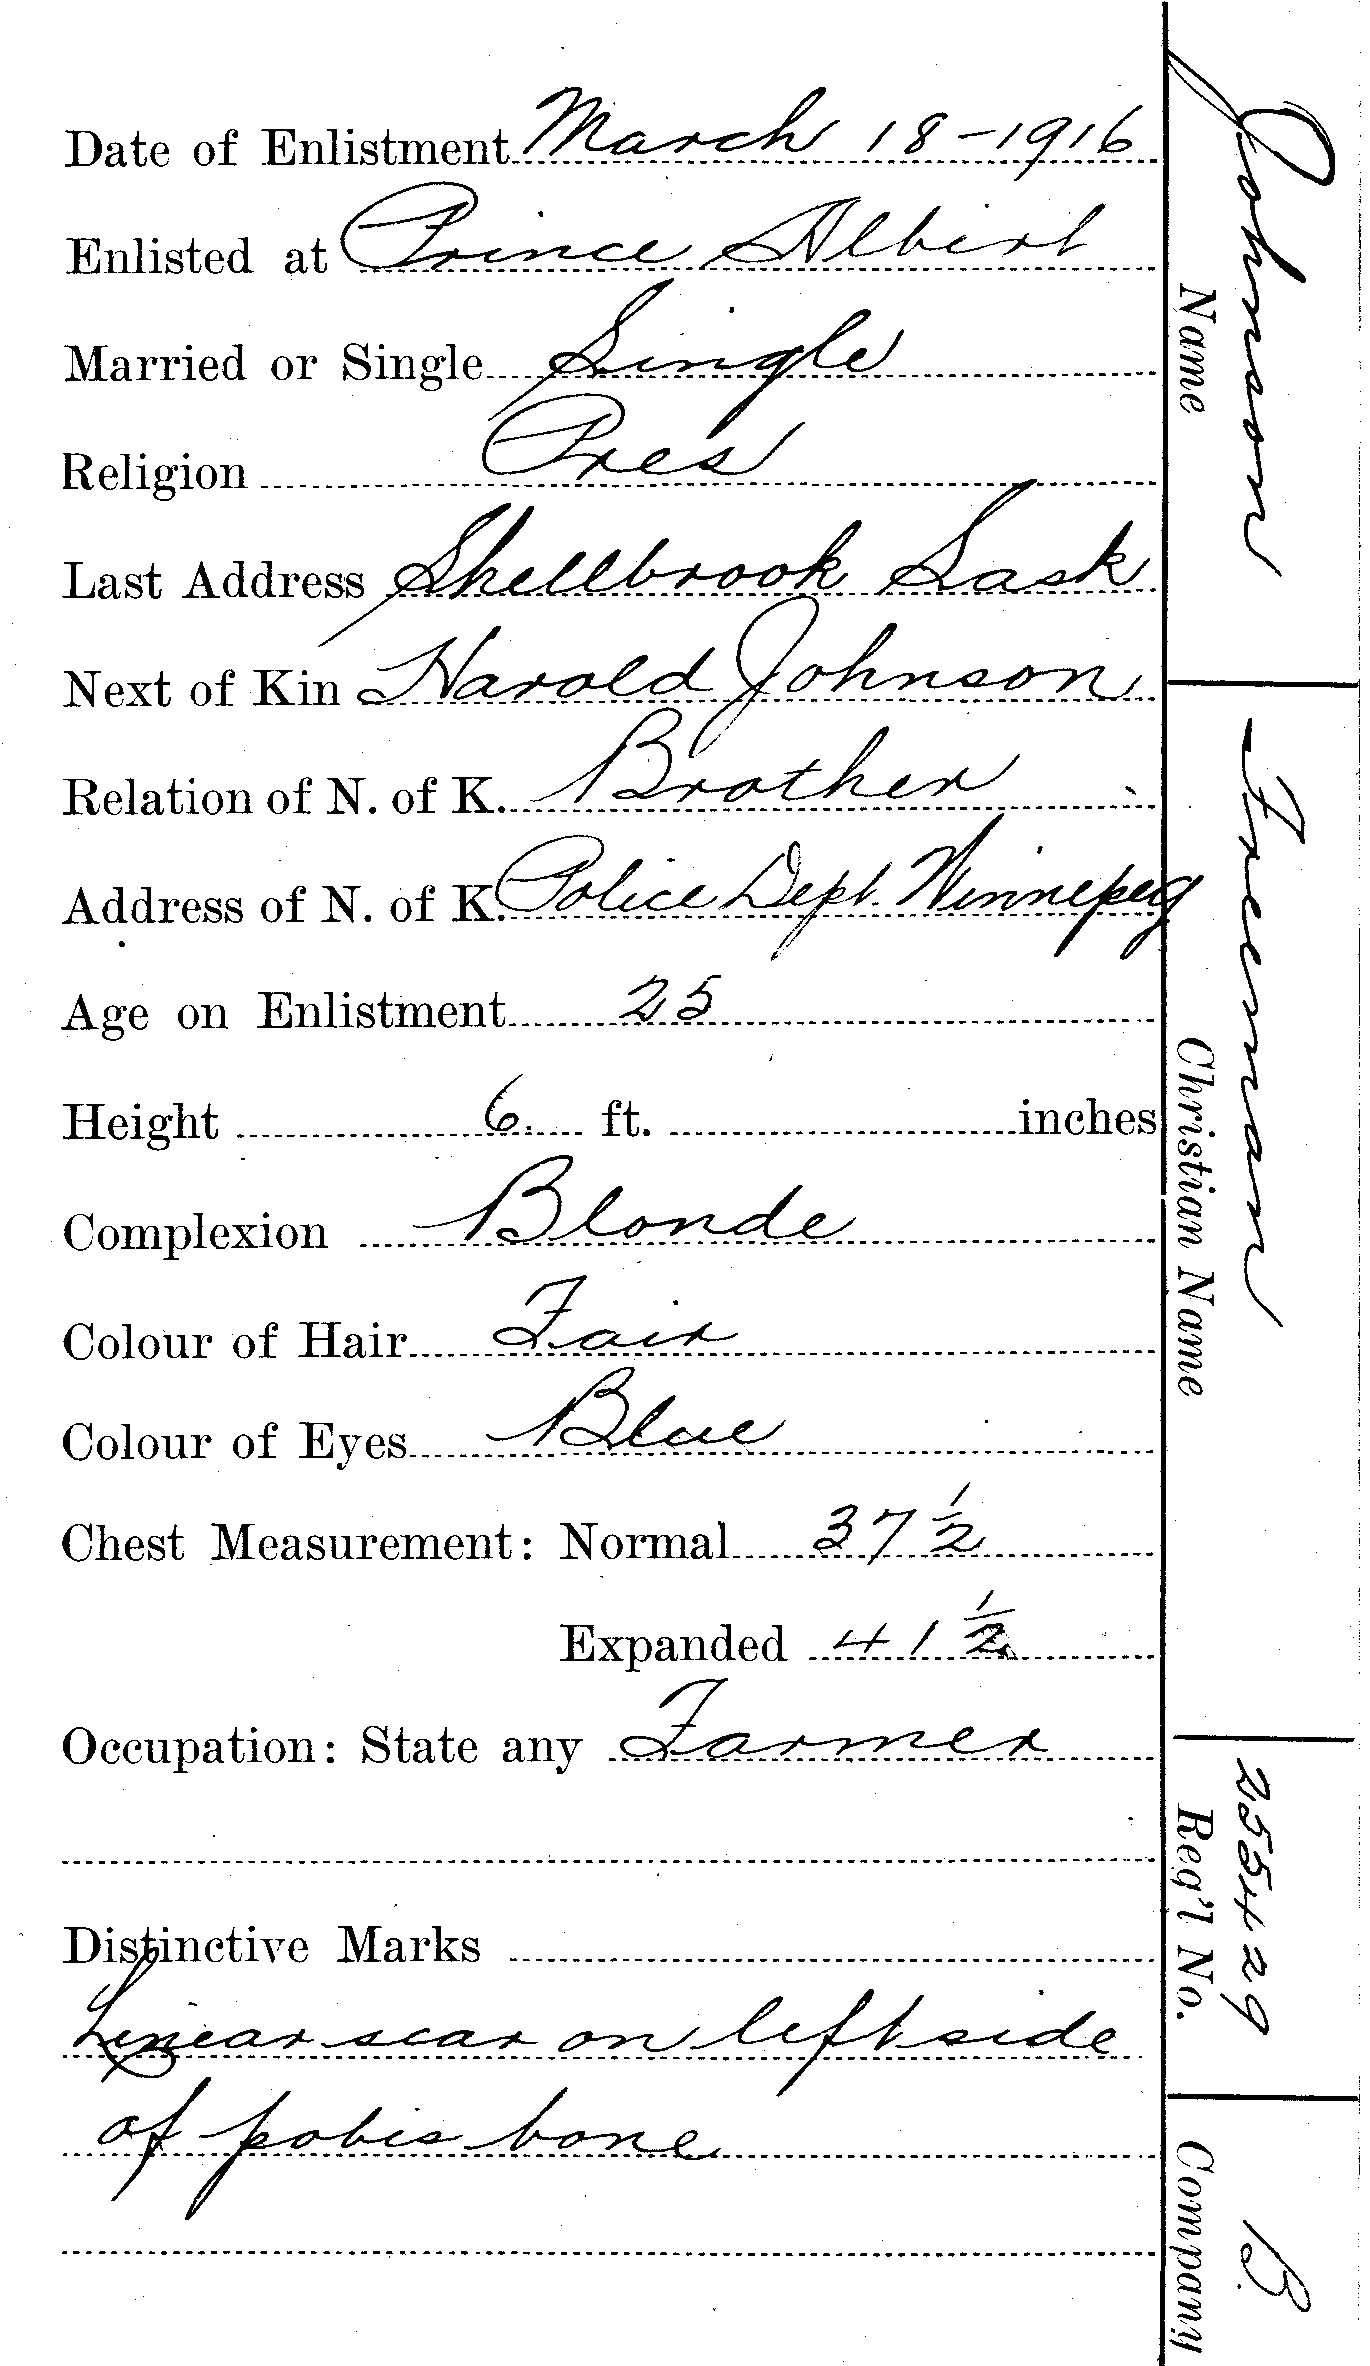 Date of Enlistment March 18-1916
Enlisted at Prince Albert
Married or Single Single
Religion Pres
Last Address Shellbrook Sask
Next of Kin Harold Johnson
Relation of N. of K. Brother
Address of N. of K. Police Dept. Winnepeg
Age on Enlistment 25
Height 6 ft. inches
Complexion Blonde
Colour of Hair Fair
Colour of Eyes Blue
Chest Measurement: Normal 37 1/2
Expanded 41 1/2
Occupation: State any Farmer
Distinctive Marks
Linear scar on left side
of pobis bone
Johnson
Name
Freeman
Christian Name
255429
Reg'l No.
B.
Company